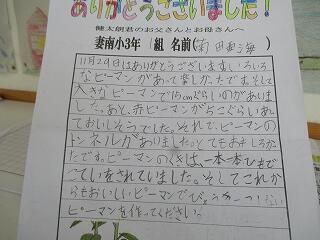 ありがとうございました!
健太朗君のお父さんとお母さんへ
妻南小3年 1組 名前( 田 海)
11月29日はありがとうございます。いろいろ
なピーマンがあって楽しかったです。そして
大きなピーマンで15cmぐらいのがありま
した。あと、赤ピーマンが5こぐらいあって
おいしそうでした。それで、ピーマンの
トンネルがありました。とてもおもしろかっ
たです。ピーマンのくきは、一本一本ひもで
こていをされていました。そしてこれか
らもおいしいピーマンでびょうきに
ピーマンを作ってください。